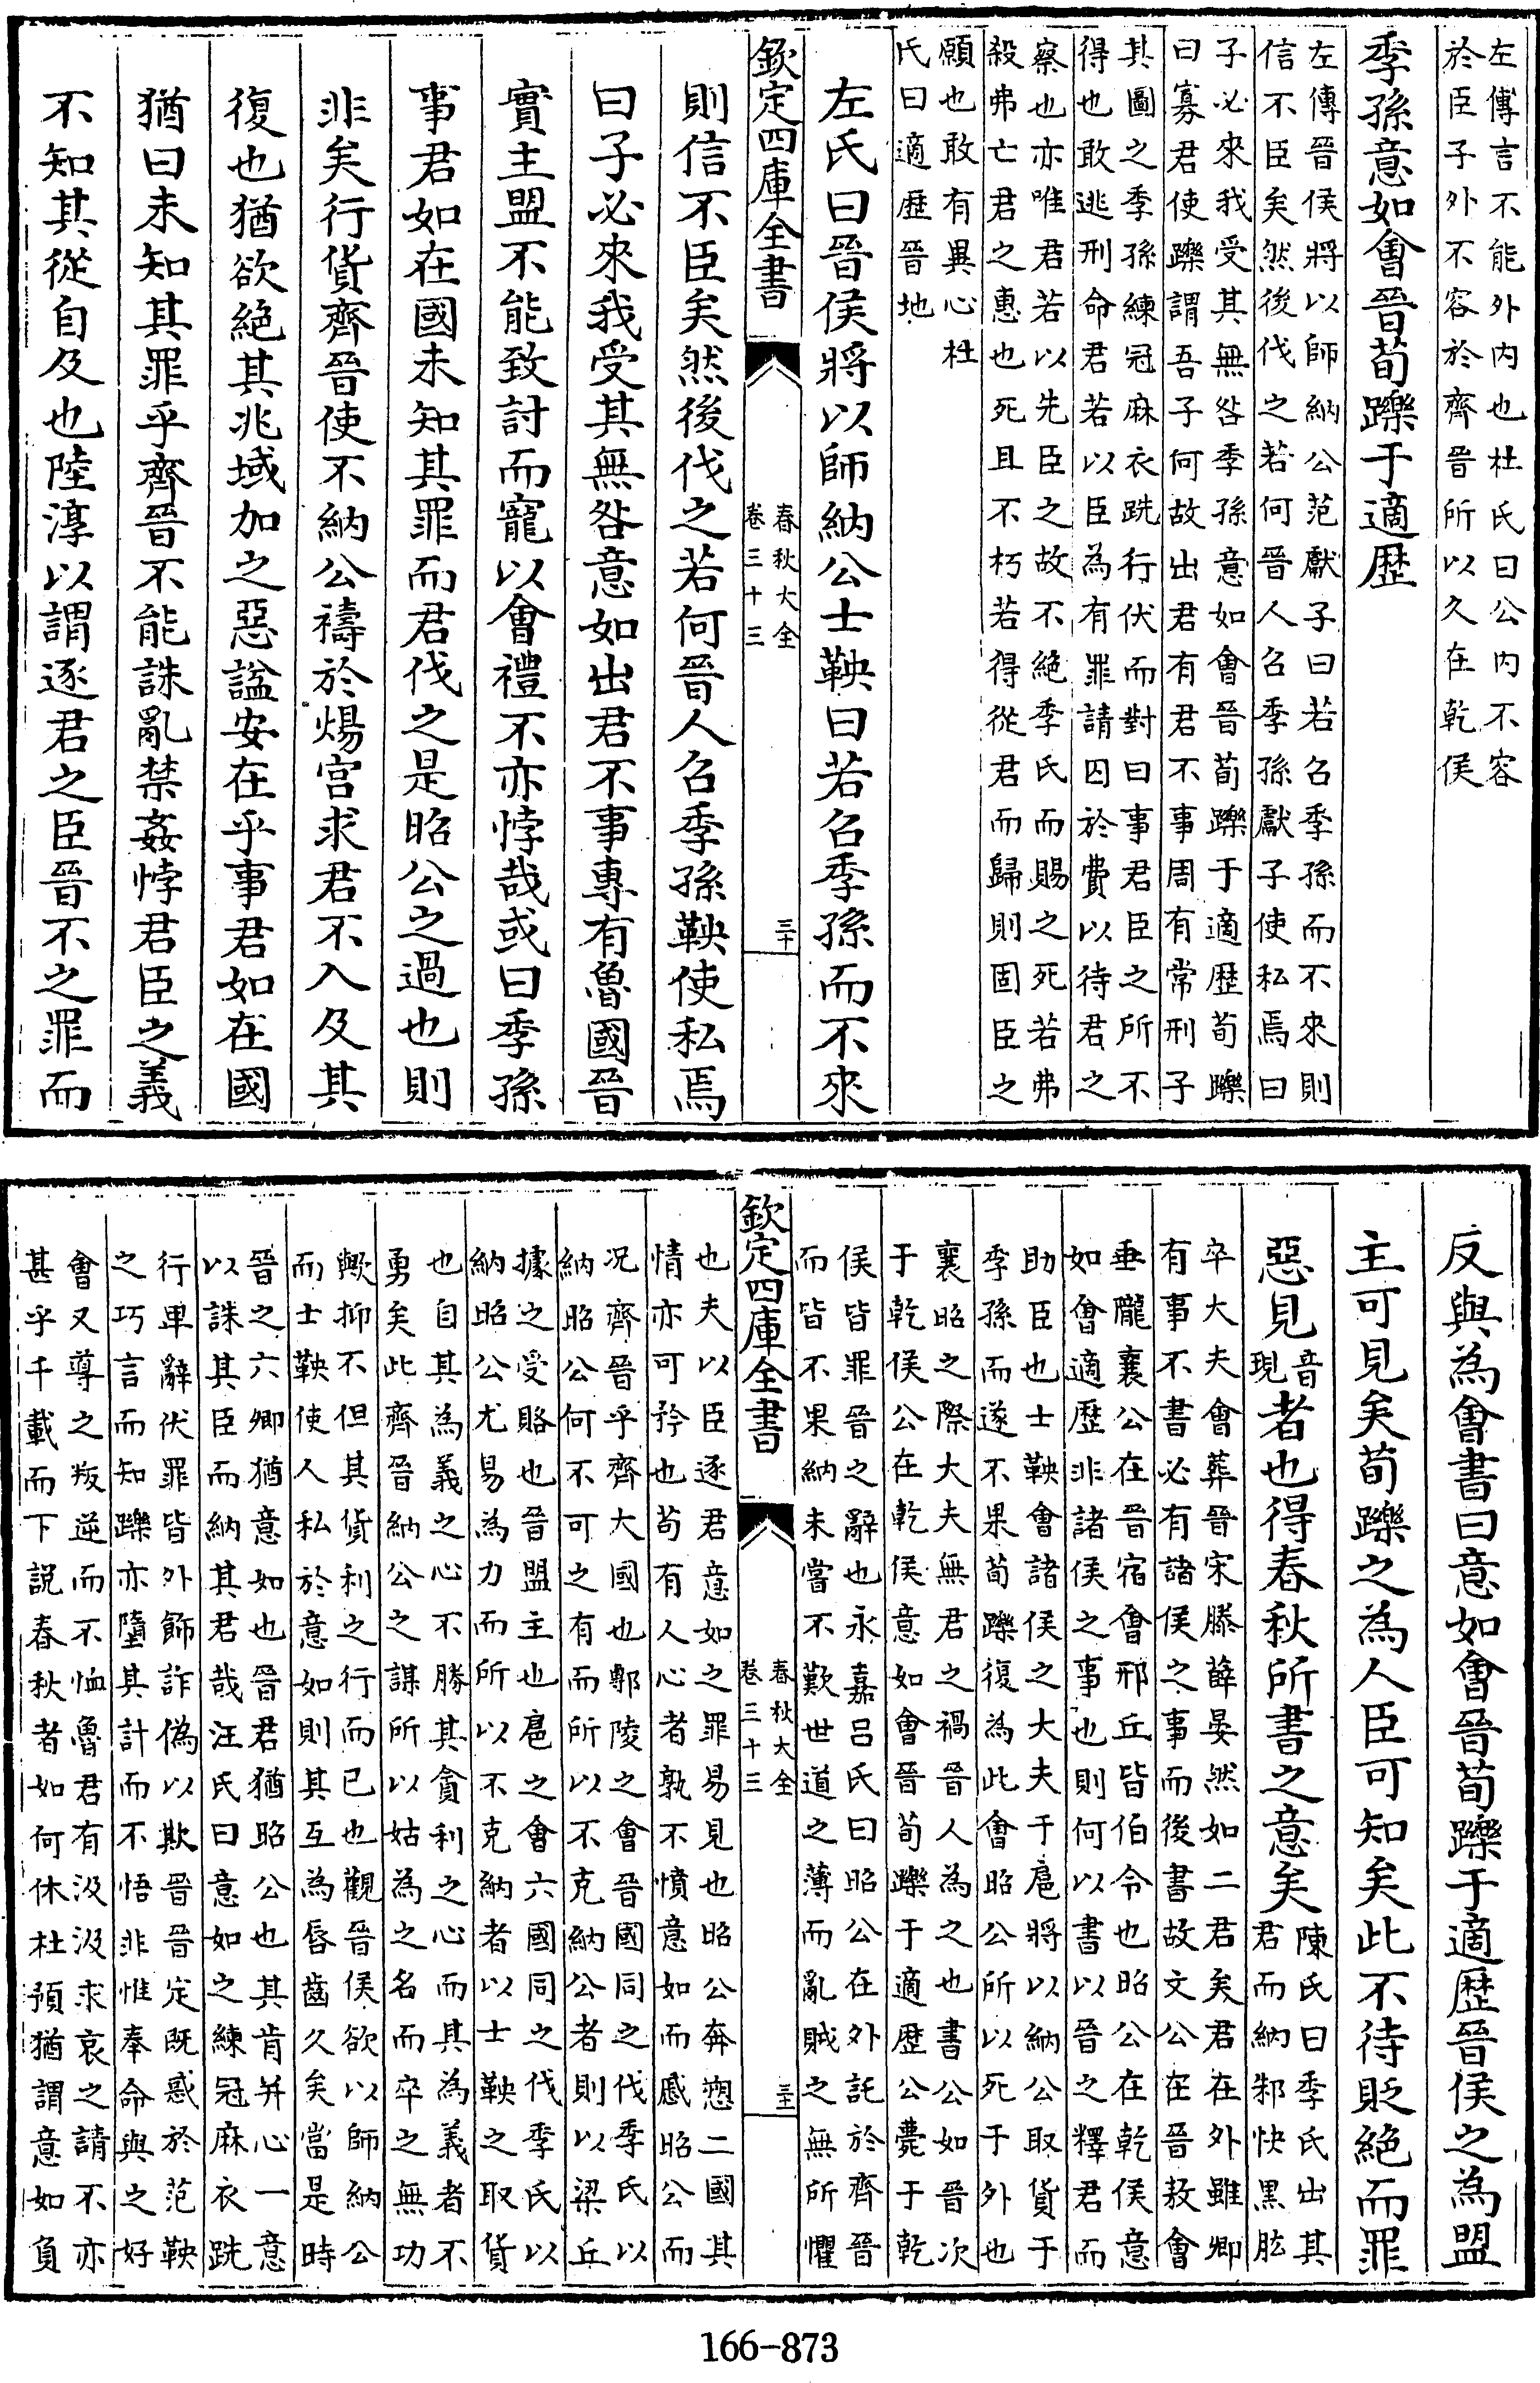 左傳言不能外内也杜氏曰公内不容
於臣子外不容於齊晉所以久在乾侯
季孫意如會晉荀躒于適歴
左傳晉侯將以師納公范獻子曰若召季孫而不來則
信不臣矣然後伐之若何晉人召季孫獻子使私焉曰
子必來我受其無咎季孫意如會晉荀躒于適歴荀躒
曰寡君使躒謂吾子何故出君有君不事周有常刑子
其圖之季孫練冠麻衣跣行伏而對曰事君臣之所不
得也敢逃刑命君若以臣為有罪請囚於費以待君之
察也亦唯君若以先臣之故不絶季氏而賜之死若弗
殺弗亡君之惠也死且不朽若得從君而歸則固臣之
願也敢有異心杜
氏曰適歴晉地
左氏曰晉侯將以師納公士鞅曰若召季孫而不來
欽定四庫全書
春秋大全
卷三十三
三十
則信不臣矣然後伐之若何晉人召季孫鞅使私焉
曰子必來我受其無咎意如出君不事專有魯國晉
實主盟不能致討而寵以會禮不亦悖哉或曰季孫
事君如在國未知其罪而君伐之是昭公之過也則
非矣行貨齊晉使不納公禱於煬宫求君不入及其
復也猶欲絶其兆域加之惡諡安在乎事君如在國
猶曰未知其罪乎齊晉不能誅亂禁姦悖君臣之義
不知其從自及也陸淳以謂逐君之臣晉不之罪而
反與為會書曰意如會晉荀躒于適歴晉侯之為盟
主可見矣荀躒之為人臣可知矣此不待貶絶而罪
惡見
音
現
者也得春秋所書之意矣
陳氏曰季氏出其
君而納邾快黑肱
卒大夫會葬晉宋滕薛晏然如二君矣君在外雖卿
有事不書必有諸侯之事而後書故文公在晉敖會
垂隴襄公在晉宿會邢丘皆伯令也昭公在乾侯意
如會適歴非諸侯之事也則何以書以晉之釋君而
助臣也士鞅會諸侯之大夫于扈將以納公取貨于
季孫而遂不果荀躒復為此會昭公所以死于外也
襄昭之際大夫無君之禍晉人為之也書公如晉次
于乾侯公在乾侯意如會晉荀躒于適歴公薨于乾
侯皆罪晉之辭也永嘉吕氏曰昭公在外託於齊晉
而皆不果納未嘗不歎世道之薄而亂賊之無所懼
欽定四庫全書
春秋大全
卷三十三
三十一
也夫以臣逐君意如之罪易見也昭公奔愬二國其
情亦可矜也苟有人心者孰不憤意如而慼昭公而
况齊晉乎齊大國也鄟陵之會晉國同之伐季氏以
納昭公何不可之有而所以不克納公者則以梁丘
據之受賂也晉盟主也扈之會六國同之伐季氏以
納昭公尤易為力而所以不克納者以士鞅之取貨
也自其為義之心不勝其貪利之心而其為義者不
勇矣此齊晉納公之謀所以姑為之名而卒之無功
歟抑不但其貨利之行而已也觀晉侯欲以師納公
而士鞅使人私於意如則其互為唇齒久矣當是時
晉之六卿猶意如也晉君猶昭公也其肯并心一意
以誅其臣而納其君哉汪氏曰意如之練冠麻衣跣
行卑辭伏罪皆外飾詐偽以欺晉晉定既惑於范鞅
之巧言而知躒亦墮其計而不悟非惟奉命與之好
會又尊之叛逆而不恤魯君有汲汲求哀之請不亦
甚乎千載而下説春秋者如何休杜預猶謂意如負
166-873